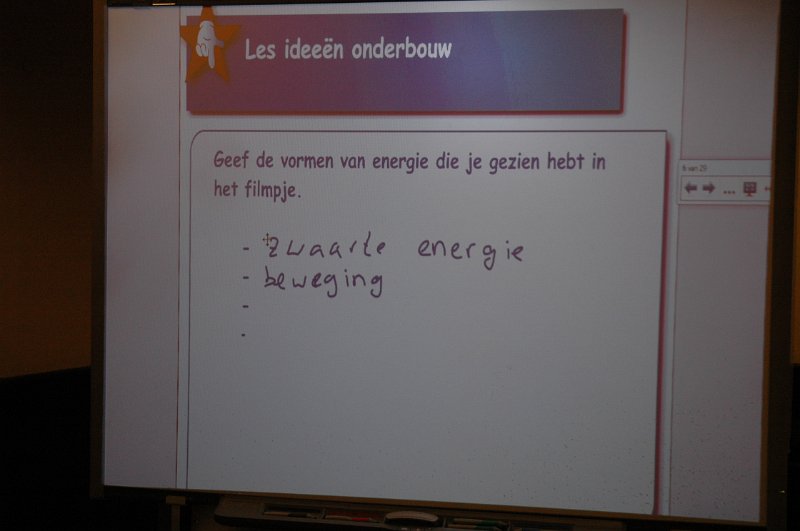 Les ideeën onderbouw
Geef de vormen van energie die je gezien hebt in
het filmpje.
- zwaarte energie
- beweging
-
-
6 van 29
...